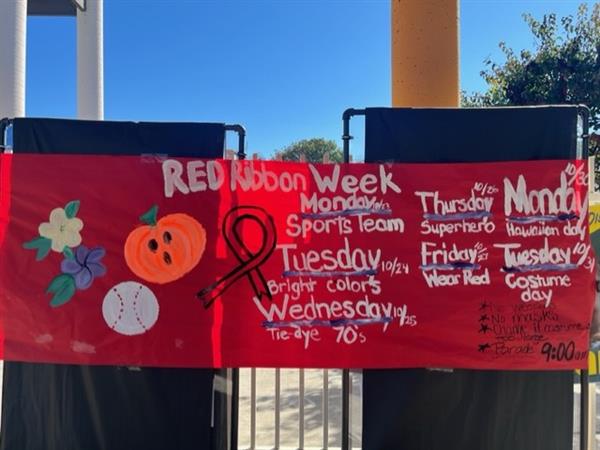 RED Ribbon Week
Monday 10/23
Sports Team
Tuesday 10/24
Bright colors
Wednesday 10/25
Tie-dye 70's
Thursday 10/26
Superhero
Friday 10/27
Wear Red
Monday 10/30
Hawaiian day
Tuesday 10/31
Costume
day
* No
* No masks
* Change if costume
too large
* Parade 9:00am